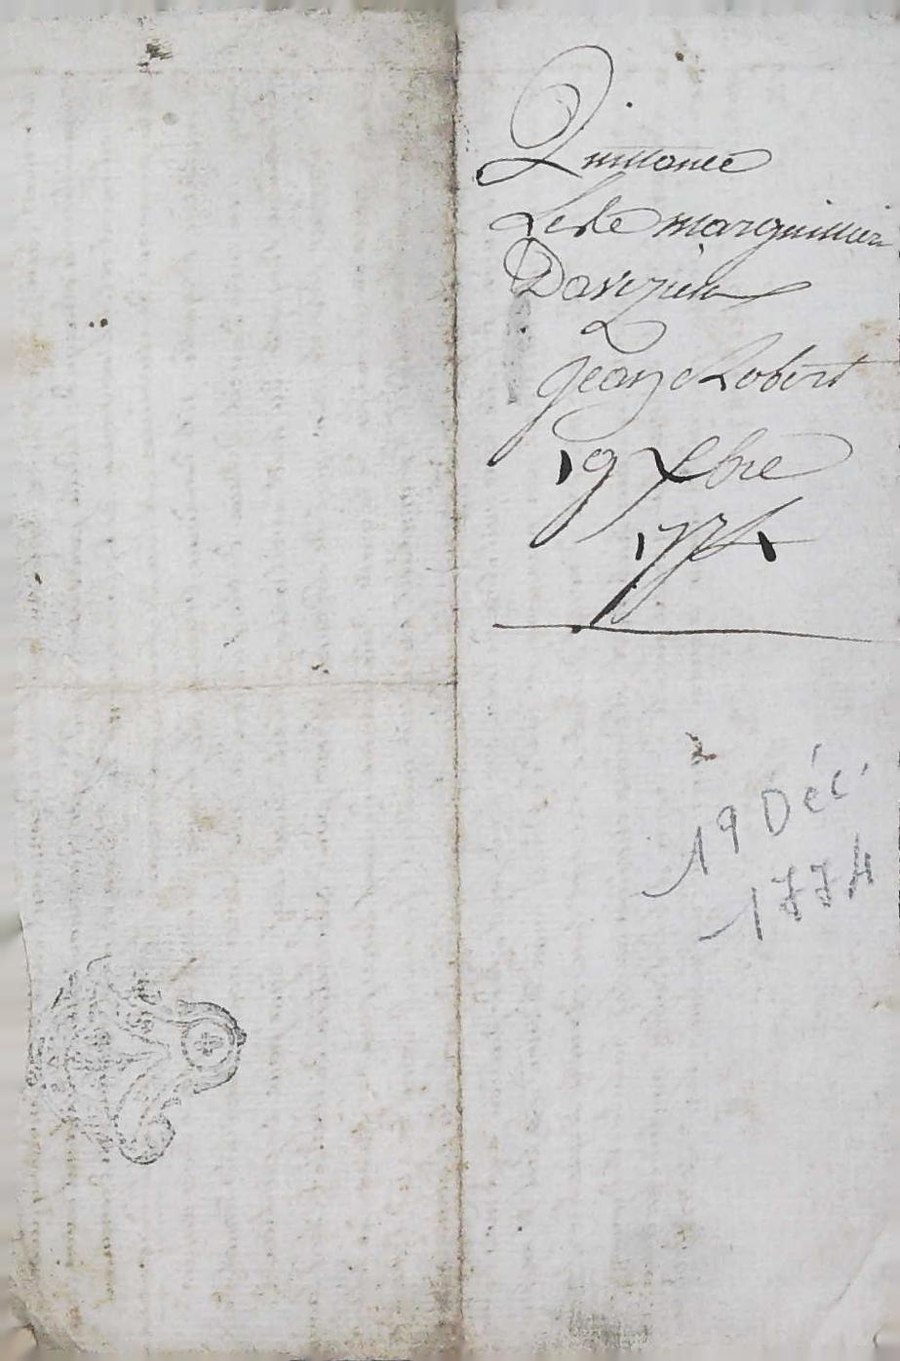 Quittance
marguillier
Davezieu
Jean Robert
19 Xbre
1774
19 Déc.
1774